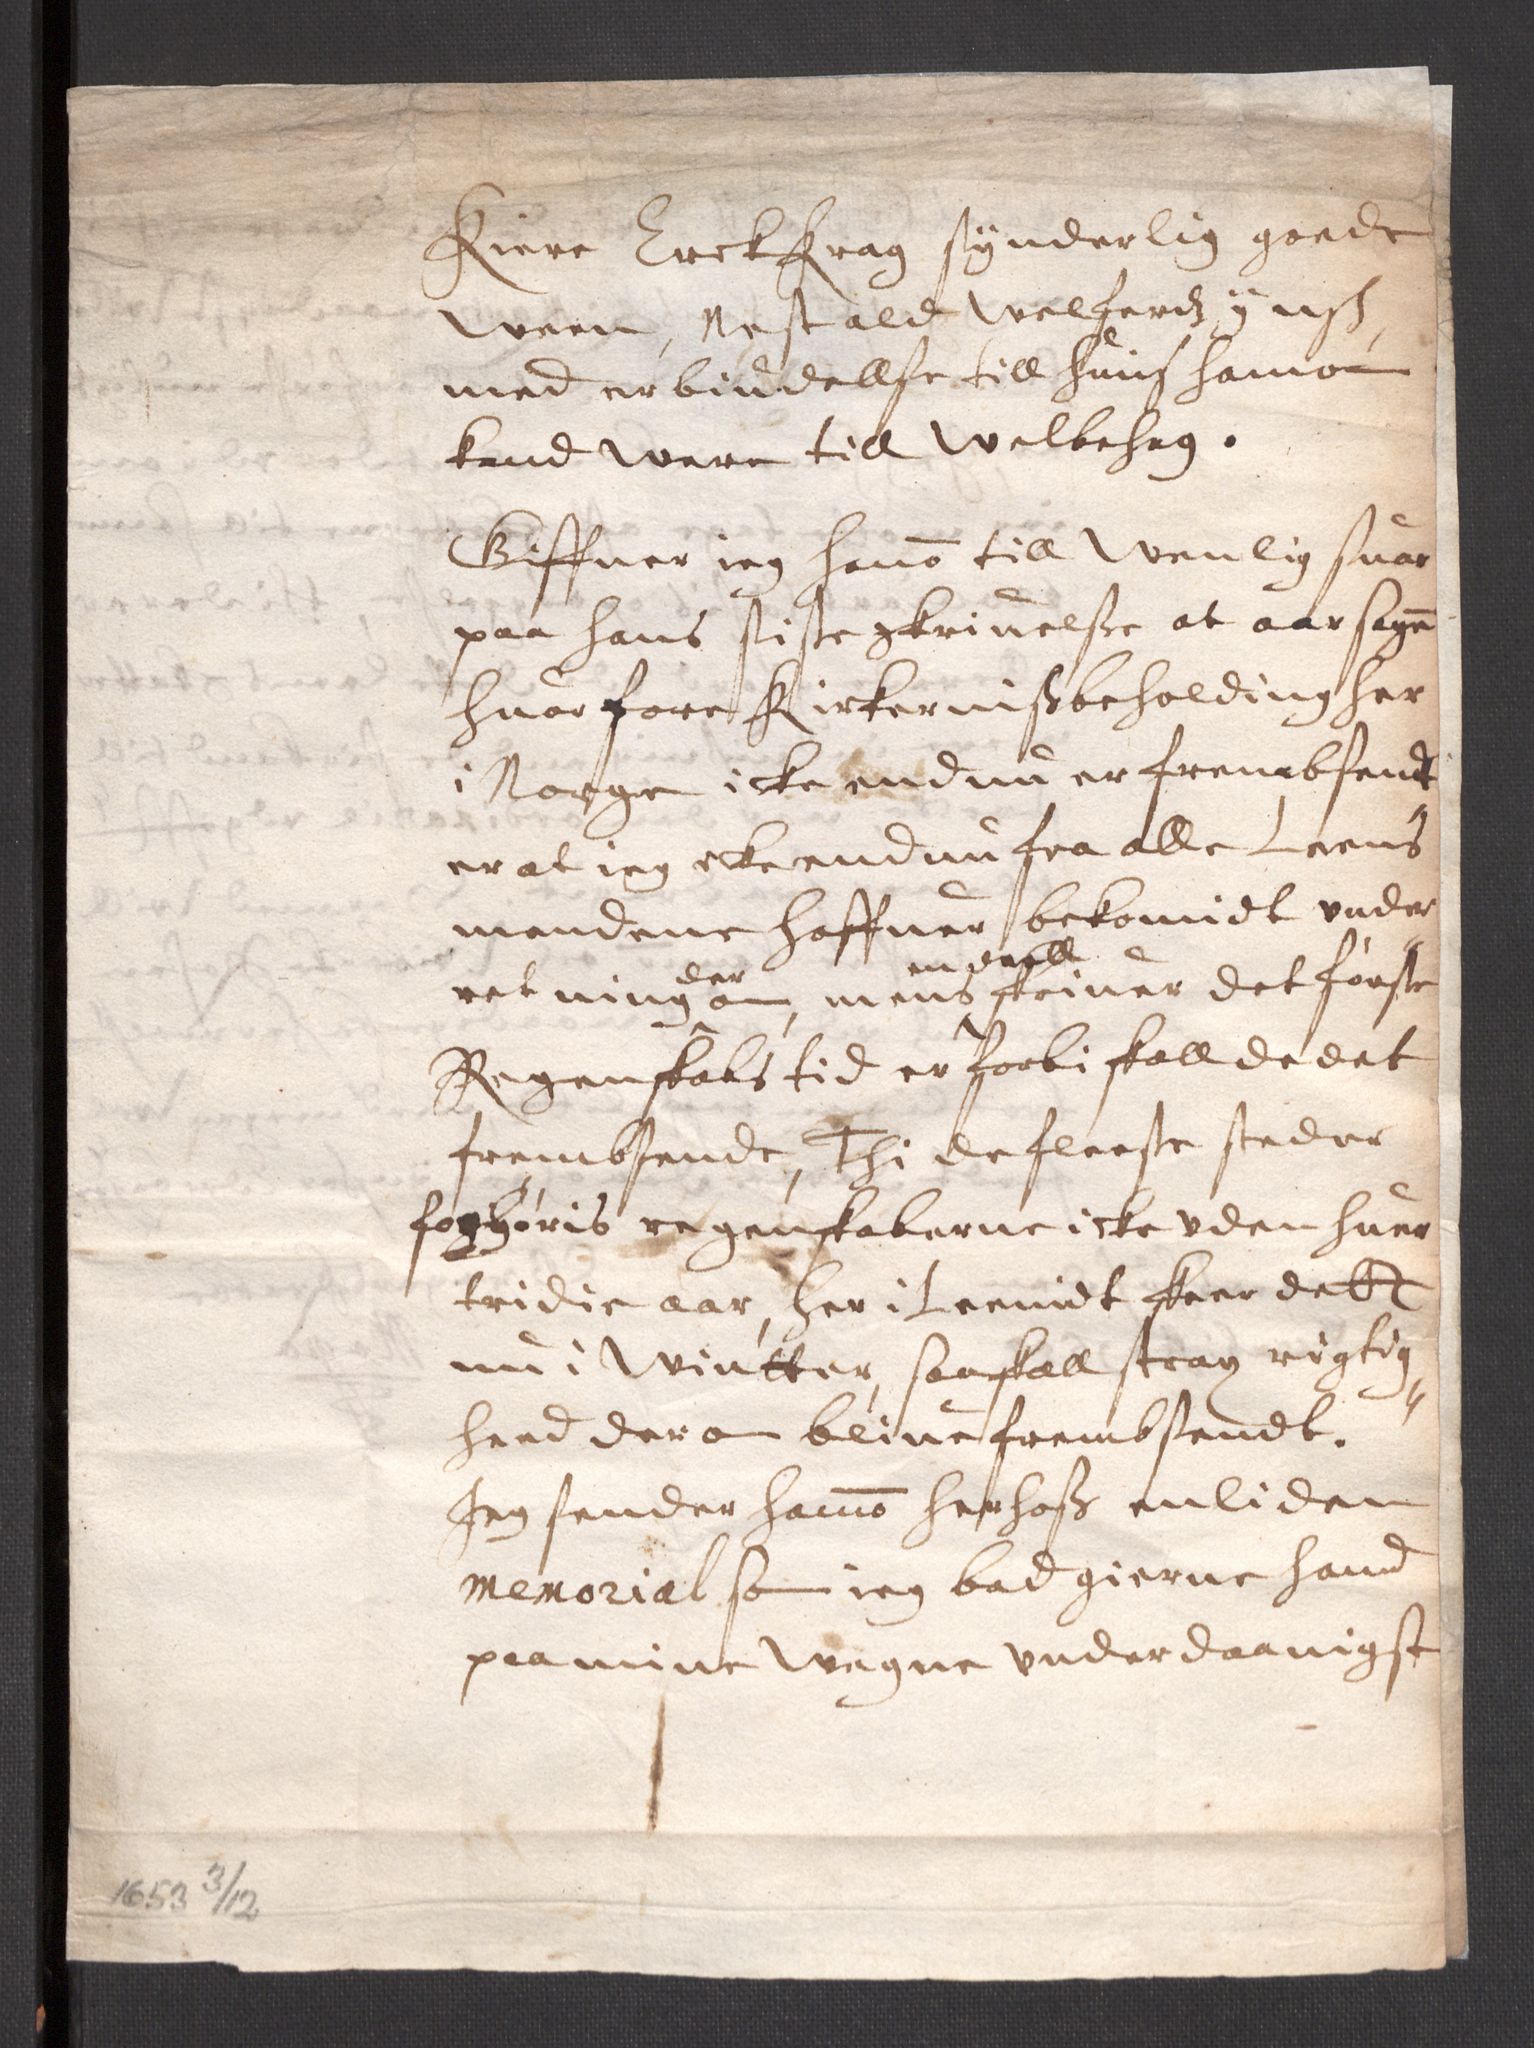 Kiere Erck Krag synderlig goede
Ween, Nest ald Welferdz ynsch,
med erbiudellse till huis hamom
kand were till Welbehag.
Giffuer ieg hano till Wenlig suar
paa hans siste skriuelsse at aarsagen
huorfore Kirkernis beholding her
i Norge icke endnu er frembsendt
er at ieg icke endnu fra alle Leens
mendene haffuer bekomidt vnder
retning der om, mens skriuer det første
endeell
Regenskabs tid er forbi skall de det
frembsende, Thi de fleeste steder
forhøris regenskaberne icke vden huer
tridie aar, her i Leenidt skeer dett
nu i Winter, saa skall strax rigtig
heed der om bliue frembsendt.
Jeg sender hanno herhoss en liden
Memorial som ieg bad gierne hand
paa mine Wegne vnderdaanigst
1653 3/12